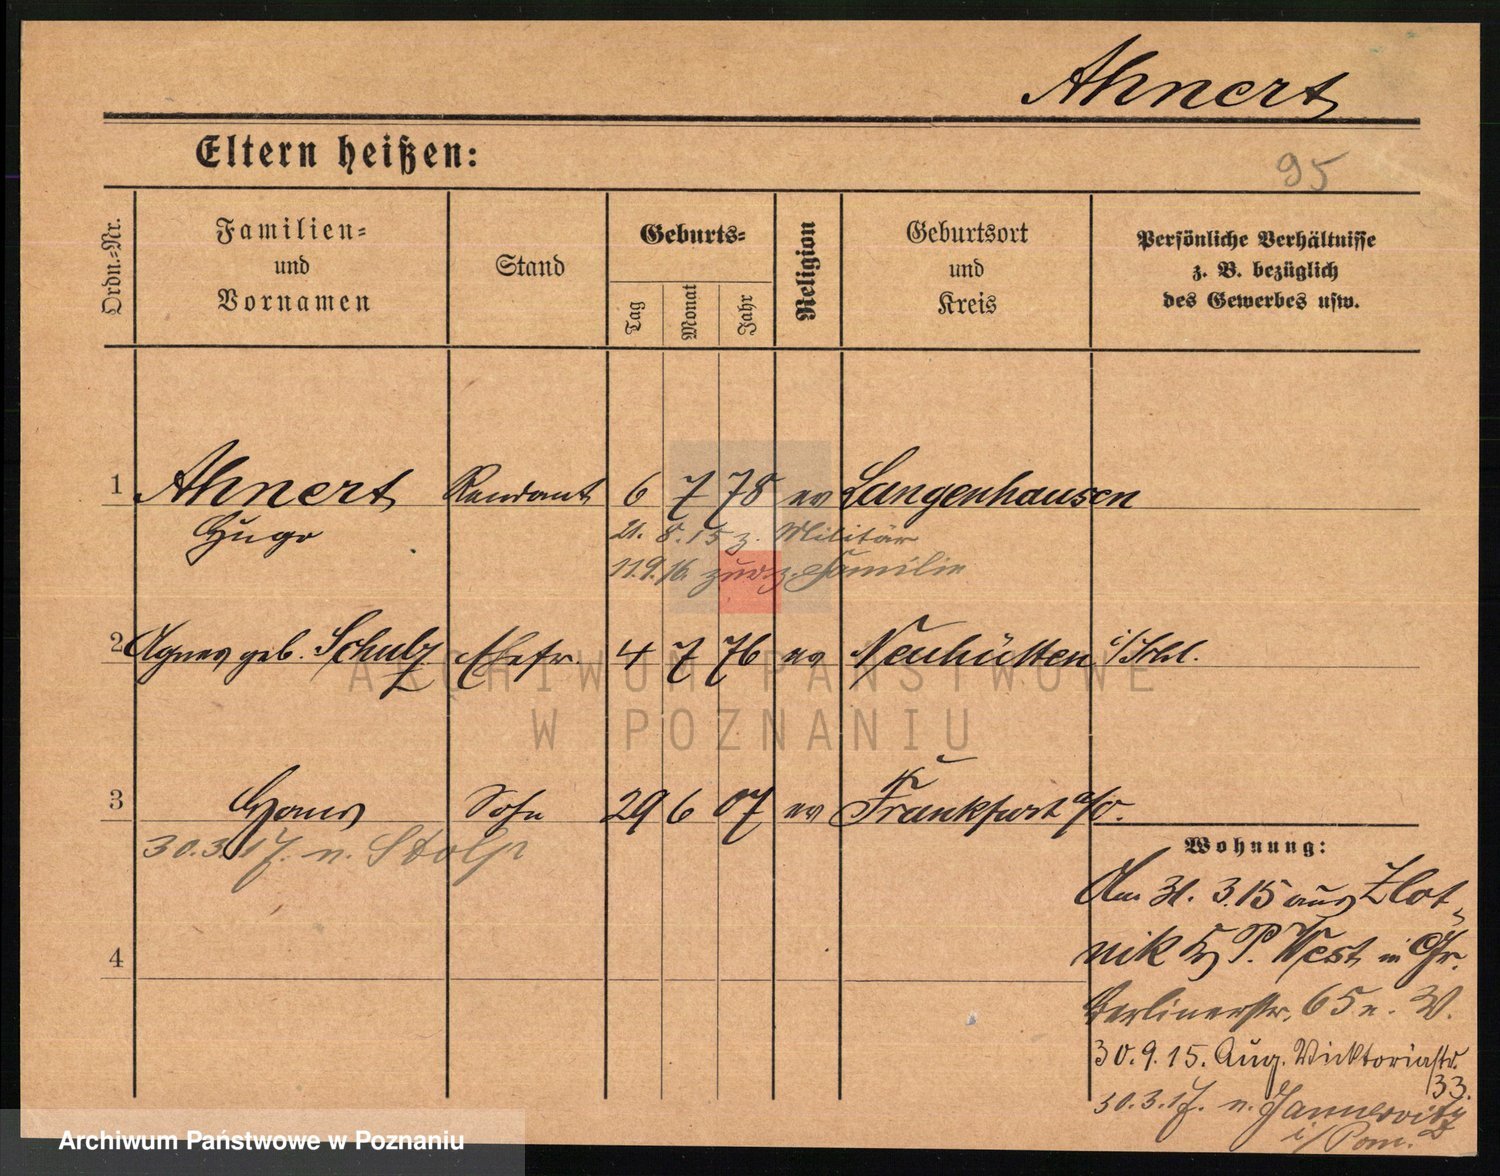 Ahnert
Eltern heißen:
95
Ordn.-Nr.
Familien-
und
Vornamen
Stand
Geburts-
Tag
Monat
Jahr
Religion
Geburtsort
und
Kreis
Persönliche Verhältnisse
z. B. bezüglich
des Gewerbes usw.
1 Ahnert Rendant 6 7 78 ev Langenhausen
Hugo
21. 8. 15 z. Militär
11.9.16. zur. z. Familie
2 Agnes geb. Schulz Ehefr. 4 7 76 ev Neuhütten i/Schl.
3 Hans Sohn 29 6 07 ev Frankfurt a/O.
30.3.17. n. Stolp
Wohnung:
Am 31. 3. 15 aus Zlot-
nik Kr P. West in Gr.
Berlinerstr. 65 n. W.
30.9.15. Aug. Vicktoriastr.
33.
30.3.17. n.
i/Pom.
4
ARCHIWUM PAŃSTWOWE
W POZNANIU
Archiwum Państwowe w Poznaniu